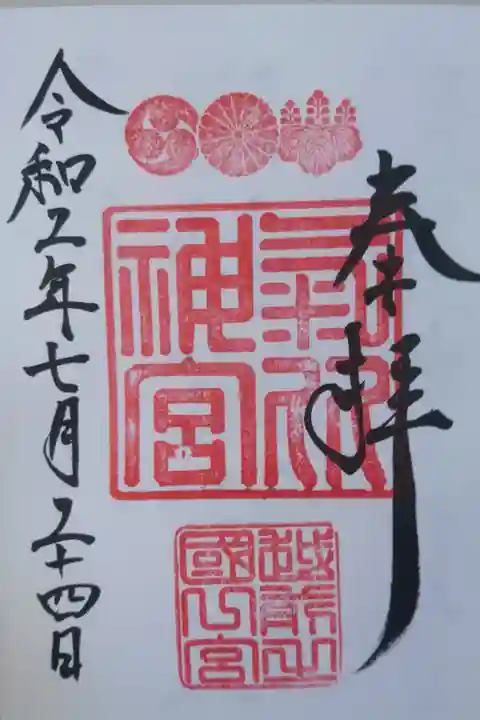 奉拝
氣比
神宮
越前
國
宮
令和二年七月二十四日